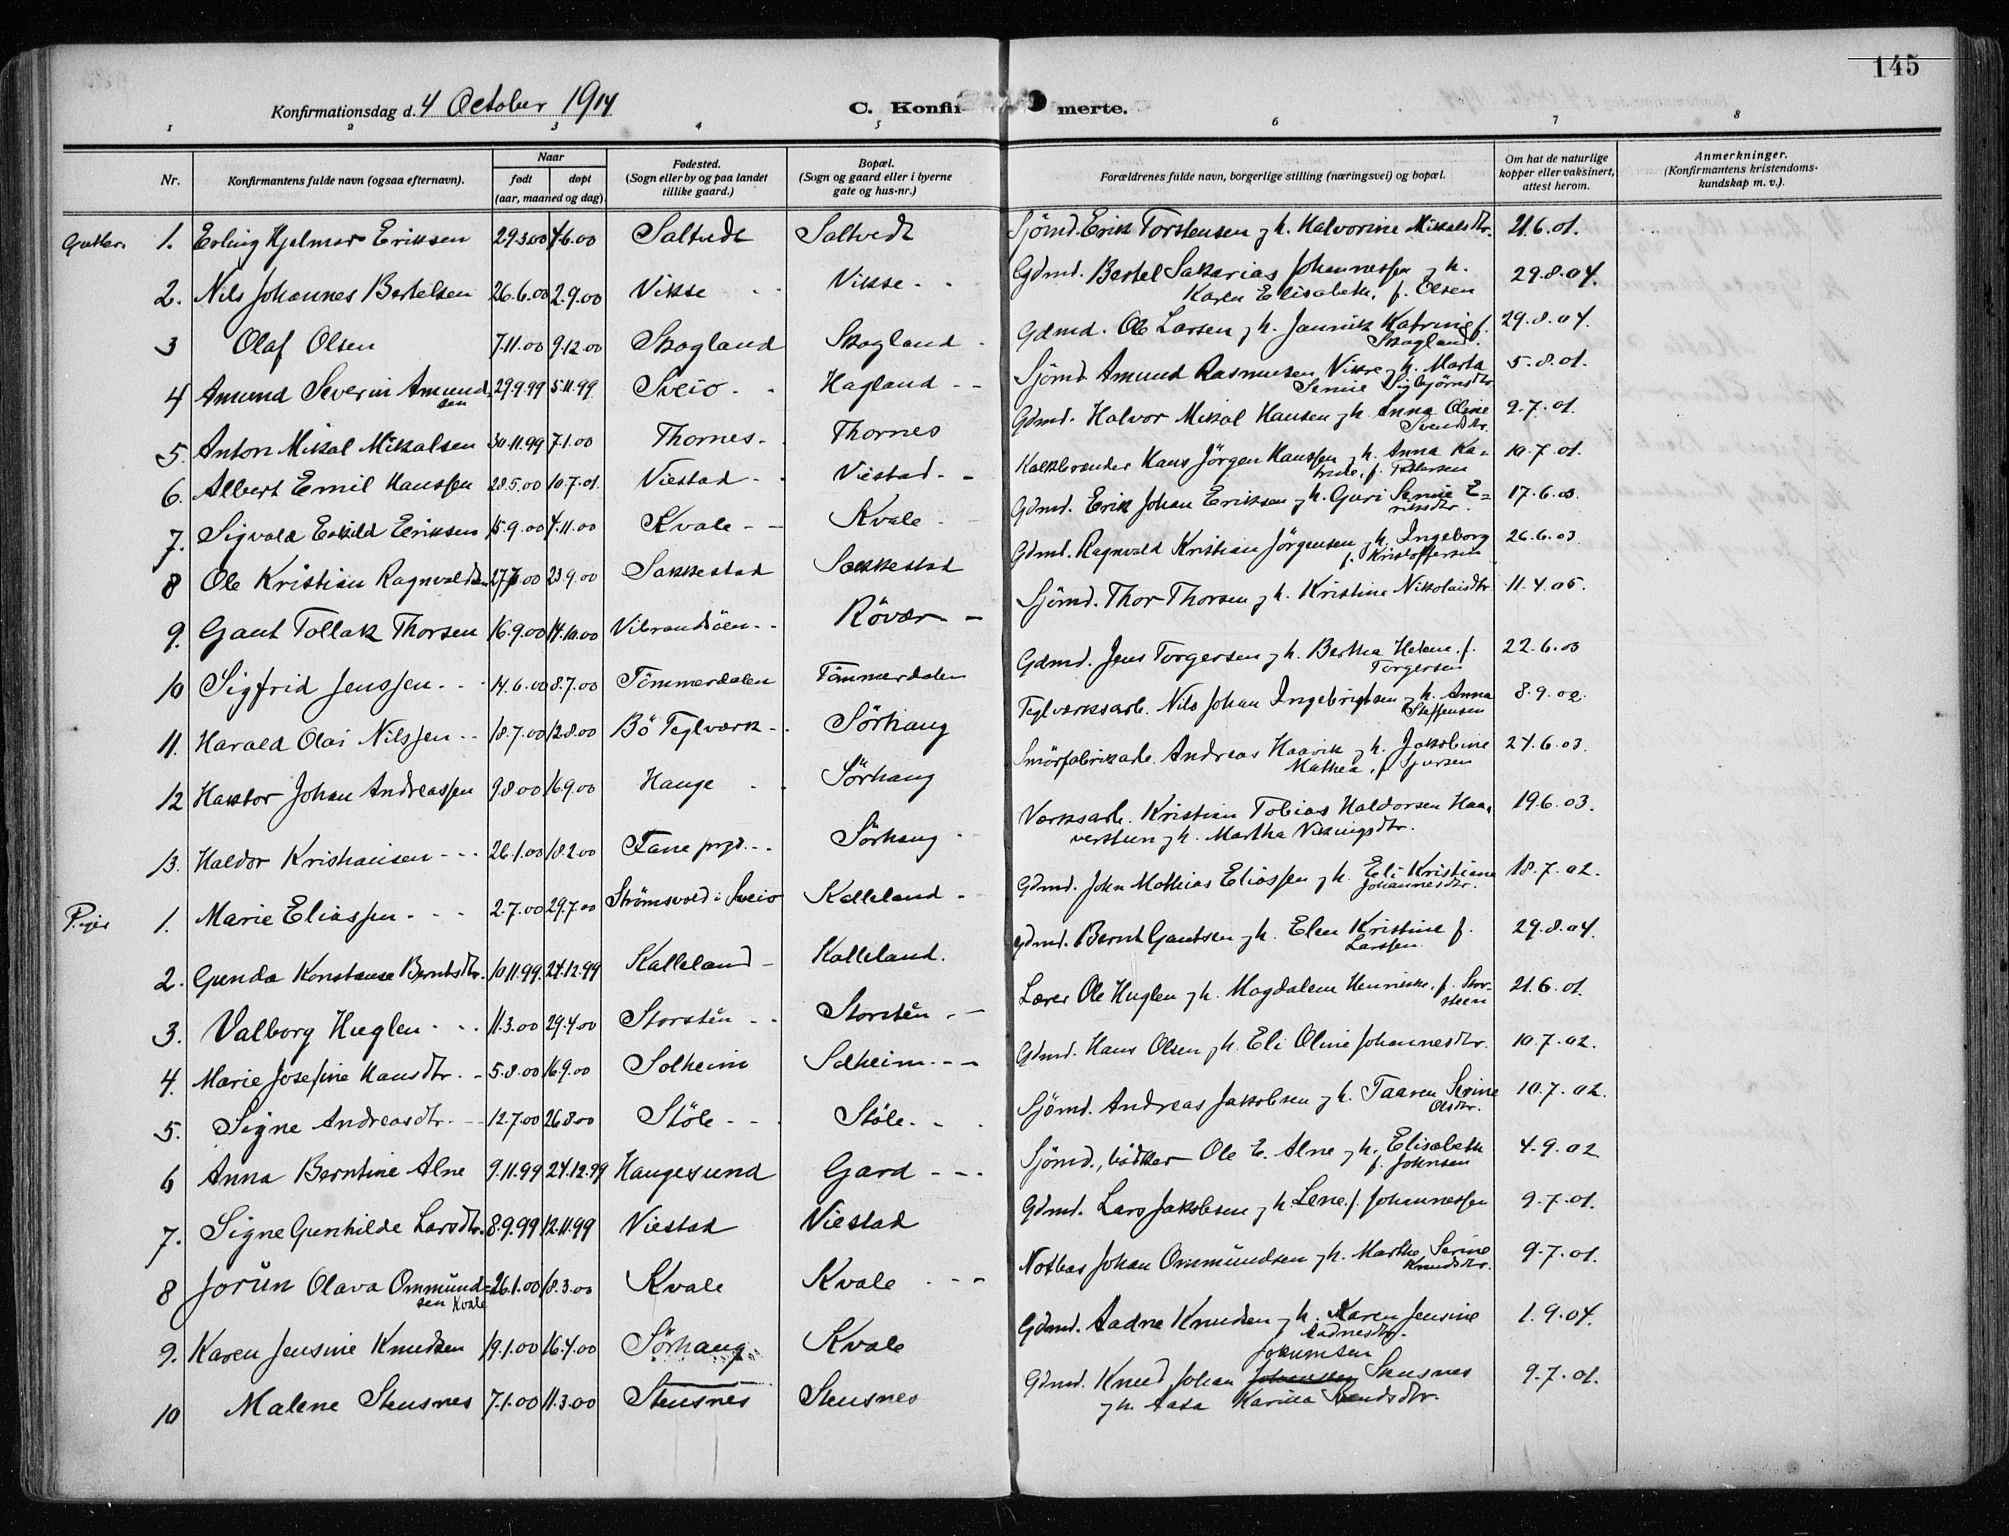 145
Konfirmationsdag d. 4 October 1914
C. Konfir merte.
1 2 3 4 5 6 7 8
Nr. Konfirmantens fulde navn (ogsaa efternavn). Naar født døpt (aar, maaned og dag) Fødested. (Sogn eller by og paa landet tillike gaard.) Bopæl. (Sogn og gaard eller i byerne gate og hus-nr.) Forældrenes fulde navn, borgerlige stilling (næringsvei) og bopæl. Om hat de naturlige kopper eller vaksinert, attest herom. Anmerkninger. (Konfirmantens kristendomskundskap m. v.).
Gutter. 1. Erling Hjelmar Eriksen 29.3.00 4.6.00 Saltvedt Saltvedt Sjömd. Erik Torstensen og h. Halvorine Mikalsdtr. 21.6.01.
2. Nils Johannes Bertelsen 26.6.00 2.9.00 Vikse Vikse Gdmd. Bertel Sakarias Johannessen og h. Karen Elisabeth, f. Olsen 29.8.04.
3 Olaf Olsen 7.11.00 9.12.00 Skogland Skogland Gdmd. Ole Larsen og h. Jannik Katrine f. Skogland 29.8.04.
4 Amund Severin Amundsen 29.9.99 5.11.99 Sveio Hagland Sjömd. Amund Rasmusen Vikse og h. Marta Serine Sigbjörnsdtr 5.8.01.
5. Anton Mikal Mikalsen 30.11.99 7.1.00 Thornes Thornes Gdmd. Halvor Mikal Hansen og h. Anna Oline Svendsdtr. 9.7.01.
6. Albert Emil Hanssen 28.5.00 10.7.01. Viestad Viestad Kalkbrænder Hans Jörgen Hanssen og h. Anna Katrine, f. Pedersen 10.7.01.
7. Sigvald Eskild Eriksen 15.9.00 4.11.00 Kvale Kvale Gdmd. Erik Johan Eriksen og h. Guri Serine Eriksdtr. 17.6.03.
8 Ole Kristian Ragnvaldsen 27.7.00 23.9.00 Sakkestad Sakkestad Gdmd. Ragnvald Kristian Jörgensen og h. Ingeborg f. Kristoffersen 26.6.03
9. Gaut Tollak Thorsen 16.9.00 14.10.00 Vibrandsöen Rövær Sjömd. Thor Thorsen og h. Kristine Nikolaisdtr 11.4.05.
10 Sigfrid Jenssen 14.6.00 8.7.00 Tömmerdalen Tömmerdalen Gdmd. Jens Torgersen og h. Bertha Helene, f. Torgersen 22.6.03
11. Harald Olai Nilssen 18.7.00 12.8.00 Bö Teglværk Sörhaug Teglværksarb. Nils Johan Ingebrigtsen og h. Anna Steffensen 8.9.02.
12 Haktor Johan Andreassen 9.8.00 16.9.00 Hauge Sörhaug Smörfabrikarb. Andreas Haavik og h. Jakobine Mathea, f. Sjursen 24.6.03.
13. Haldor Kristiansen 26.1.00 18.2.00 Fane prgd. Sörhaug Værksarb. Kristian Tobias Haldorsen Haaverstun og h. Martha Vikingsdtr. 19.6.03.
Piger 1. Marie Eliassen 2.7.00 29.7.00 Strömsvold i Sveio Kalleland Gdmd. John Mathias Eliassen og h. Eli Kristiane Johannesdtr. 18.7.02.
2. Gunda Konstanse Berntsdtr. 10.11.99 24.12.99 Kalleland Kalleland. Gdmd. Bernt Gautsen og h. Elen Kristine f. Larssen. 29.8.04.
3. Valborg Huglen 11.3.00 29.4.00 Storstén Storstén Lærer Ole Huglen og h. Magdalene Henrikke, f. Storsteen 21.6.01.
4. Marie Josefine Hansdtr. 5.8.00 16.9.00 Solheim Solheim Gdmd. Hans Olsen og h. Eli Oline Johannesdtr. 10.7.02.
5. Signe Andreasdtr. 12.7.00 26.8.00 Stöle Stöle Sjömd. Andreas Jakobsen og h. Taaren Serine Olsdtr. 10.7.02.
6 Anna Berntine Alne 9.11.99 24.12.99 Haugesund Gard Sjömd., bödker Ole E. Alne og h. Elisabeth f. Johnsen 4.9.02
7. Signe Gunhilde Larsdtr. 8.9.99 12.11.99 Viestad Viestad Gdmd. Lars Jakobsen og h. Lene, f. Johannessen 9.7.01.
8 Jorun Olava Ommundsen Kvale 26.1.00 18.3.00 Kvale Kvale Notbas Johan Ommundsen og h. Marthe Serine Knudsdtr. 9.7.01.
9. Karen Jensine Knudsen 19.1.00 16.4.00 Sörhaug Kvale Gdmd. Aadne Knudsen og h. Karen Jensine Aadnesdtr. 1.9.04.
10 Malene Stensnes 7.1.00 11.3.00 Stensnes Stensnes Gdmd. Knud Johan Jokumsen Stensnes og h. Aasa Karina Svendsdtr. 9.7.01.